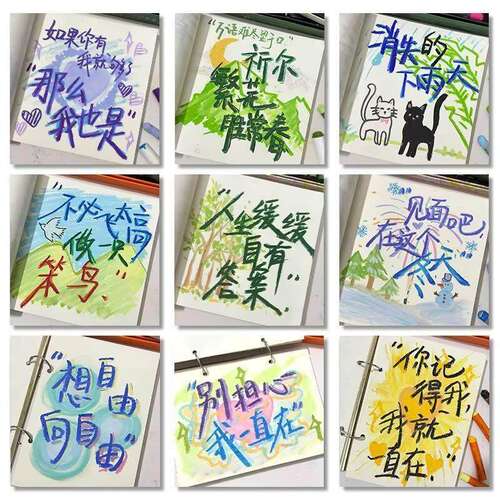 如果你有
我就够了
"那么
我也是"
祈尔
繁芜
唯常春
消失的
下雨天
"不必飞太高
做一只
笨鸟."
"人生缓缓
自有
答案."
"见面吧
在这个
冬天"
"想自由
向自由"
"别担心
我一直在"
"你记
得我,
我就
一直在."